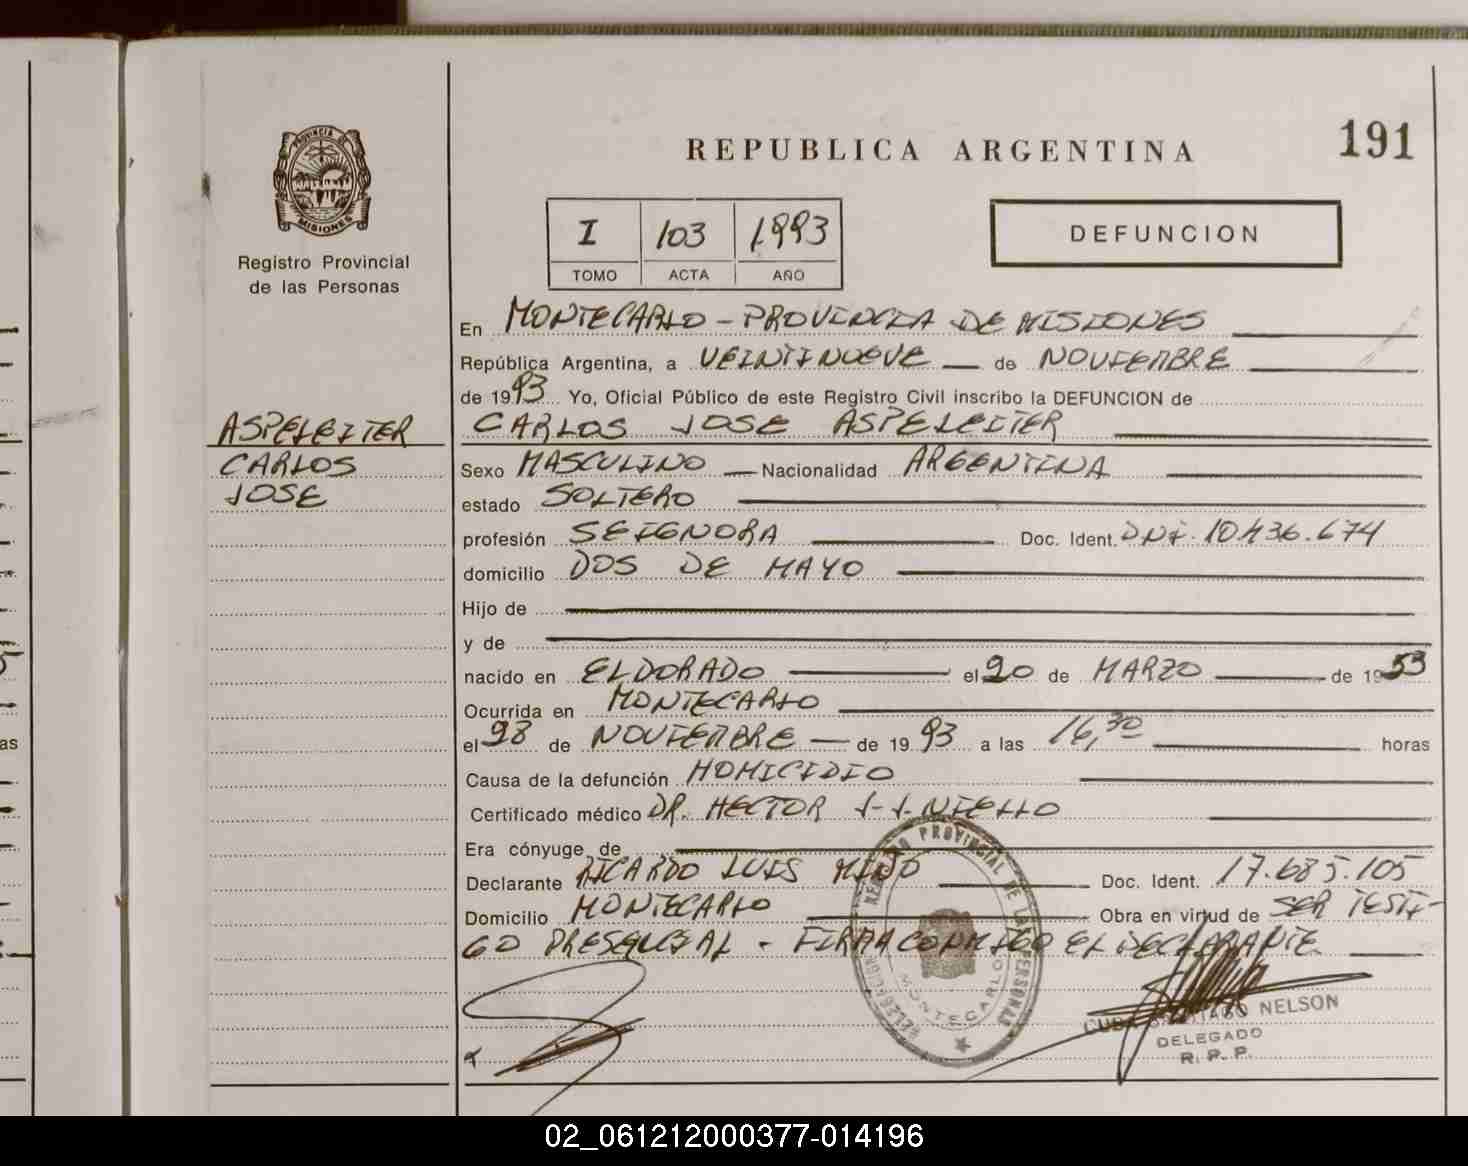 191
REPUBLICA ARGENTINA
PROVINCIA DE
MISIONES
Registro Provincial
de las Personas
I 103 1993
TOMO ACTA AÑO
DEFUNCION
En MONTECARLO - PROVINCIA DE MISIONES
República Argentina, a VEINTINUEVE de NOVIEMBRE
de 1993 Yo, Oficial Público de este Registro Civil inscribo la DEFUNCION de
ASPELEITER
CARLOS
JOSE
CARLOS JOSE ASPELEITER
Sexo MASCULINO Nacionalidad ARGENTINA
estado SOLTERO
profesión SEIGNORA Doc. Ident. DNI. 10.436.674
domicilio DOS DE MAYO
Hijo de
y de
nacido en ELDORADO el 20 de MARZO de 1953
Ocurrida en MONTECARLO
el 28 de NOVIEMBRE de 1993 a las 16,30 horas
Causa de la defunción HOMICIDIO
Certificado médico DR. HECTOR J-J. NIELLO
Era cónyuge de
Declarante RICARDO LUIS MIÑO Doc. Ident. 17.685.105
Domicilio MONTECARLO Obra en virtud de SER TESTI-
GO PRESENCIAL - FIRMA CONMIGO EL DECLARANTE
REGISTRO PROVINCIAL DE LAS PERSONAS
DELEGACION
MONTECARLO
SANTIAGO NELSON
DELEGADO
R. P. P.
02_061212000377-014196